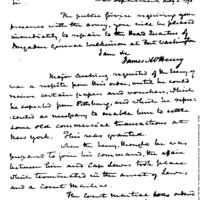 Sir, War Department July 5. 1798
The public service requiring your
presence with the army, you will be pleased
immediately, to repair to the Head Quarters of
Brigadier General Wilkinson at Fort Washington
I am &c
James McHenry
Major Cushing requested of the Secretary
was a respite from this order, until he could
receive certain papers and vouchers, which
he expected from Pittsburg, and which he repre-
sented as necessary to enable him to settle
some old commercial transactions at
New York. This was granted.
When the Secretary, thought he was
prepared to join his command, the affair
between him and Capt Lewis took place
which terminated in the arrest of Lewis,
and a Court Martial.
The Court martial was ordered